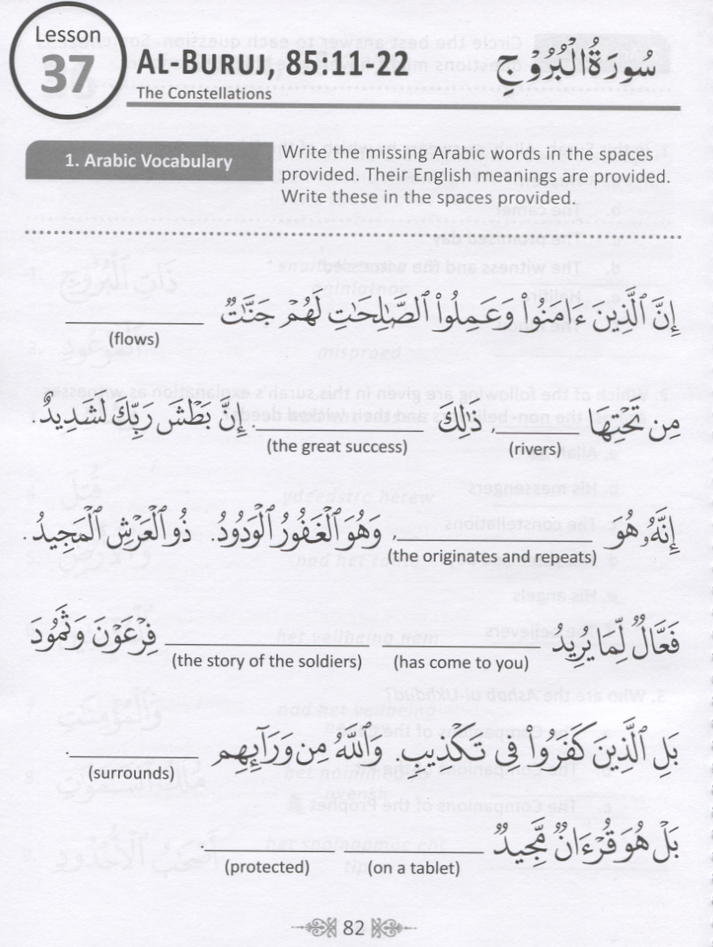 Lesson
37
AL-BURUJ, 85:11-22
سُورَةُ ٱلْبُرُوجِ
The Constellations
1. Arabic Vocabulary
Write the missing Arabic words in the spaces
provided. Their English meanings are provided.
Write these in the spaces provided.
إِنَّ ٱلَّذِينَ ءَامَنُوا۟ وَعَمِلُوا۟ ٱلصَّٰلِحَٰتِ لَهُمْ جَنَّٰتٌ
(flows)
مِن تَحْتِهَا ، ذَٰلِكَ . إِنَّ بَطْشَ رَبِّكَ لَشَدِيدٌ .
(the great success) (rivers)
إِنَّهُۥ هُوَ ، وَهُوَ ٱلْغَفُورُ ٱلْوَدُودُ . ذُو ٱلْعَرْشِ ٱلْمَجِيدُ .
(the originates and repeats)
فَعَّالٌ لِّمَا يُرِيدُ فِرْعَوْنَ وَثَمُودَ
(the story of the soldiers) (has come to you)
بَلِ ٱلَّذِينَ كَفَرُوا۟ فِى تَكْذِيبٍ وَٱللَّهُ مِن وَرَآئِهِم
(surrounds)
بَلْ هُوَ قُرْءَانٌ مَّجِيدٌ .
(protected) (on a tablet)
82